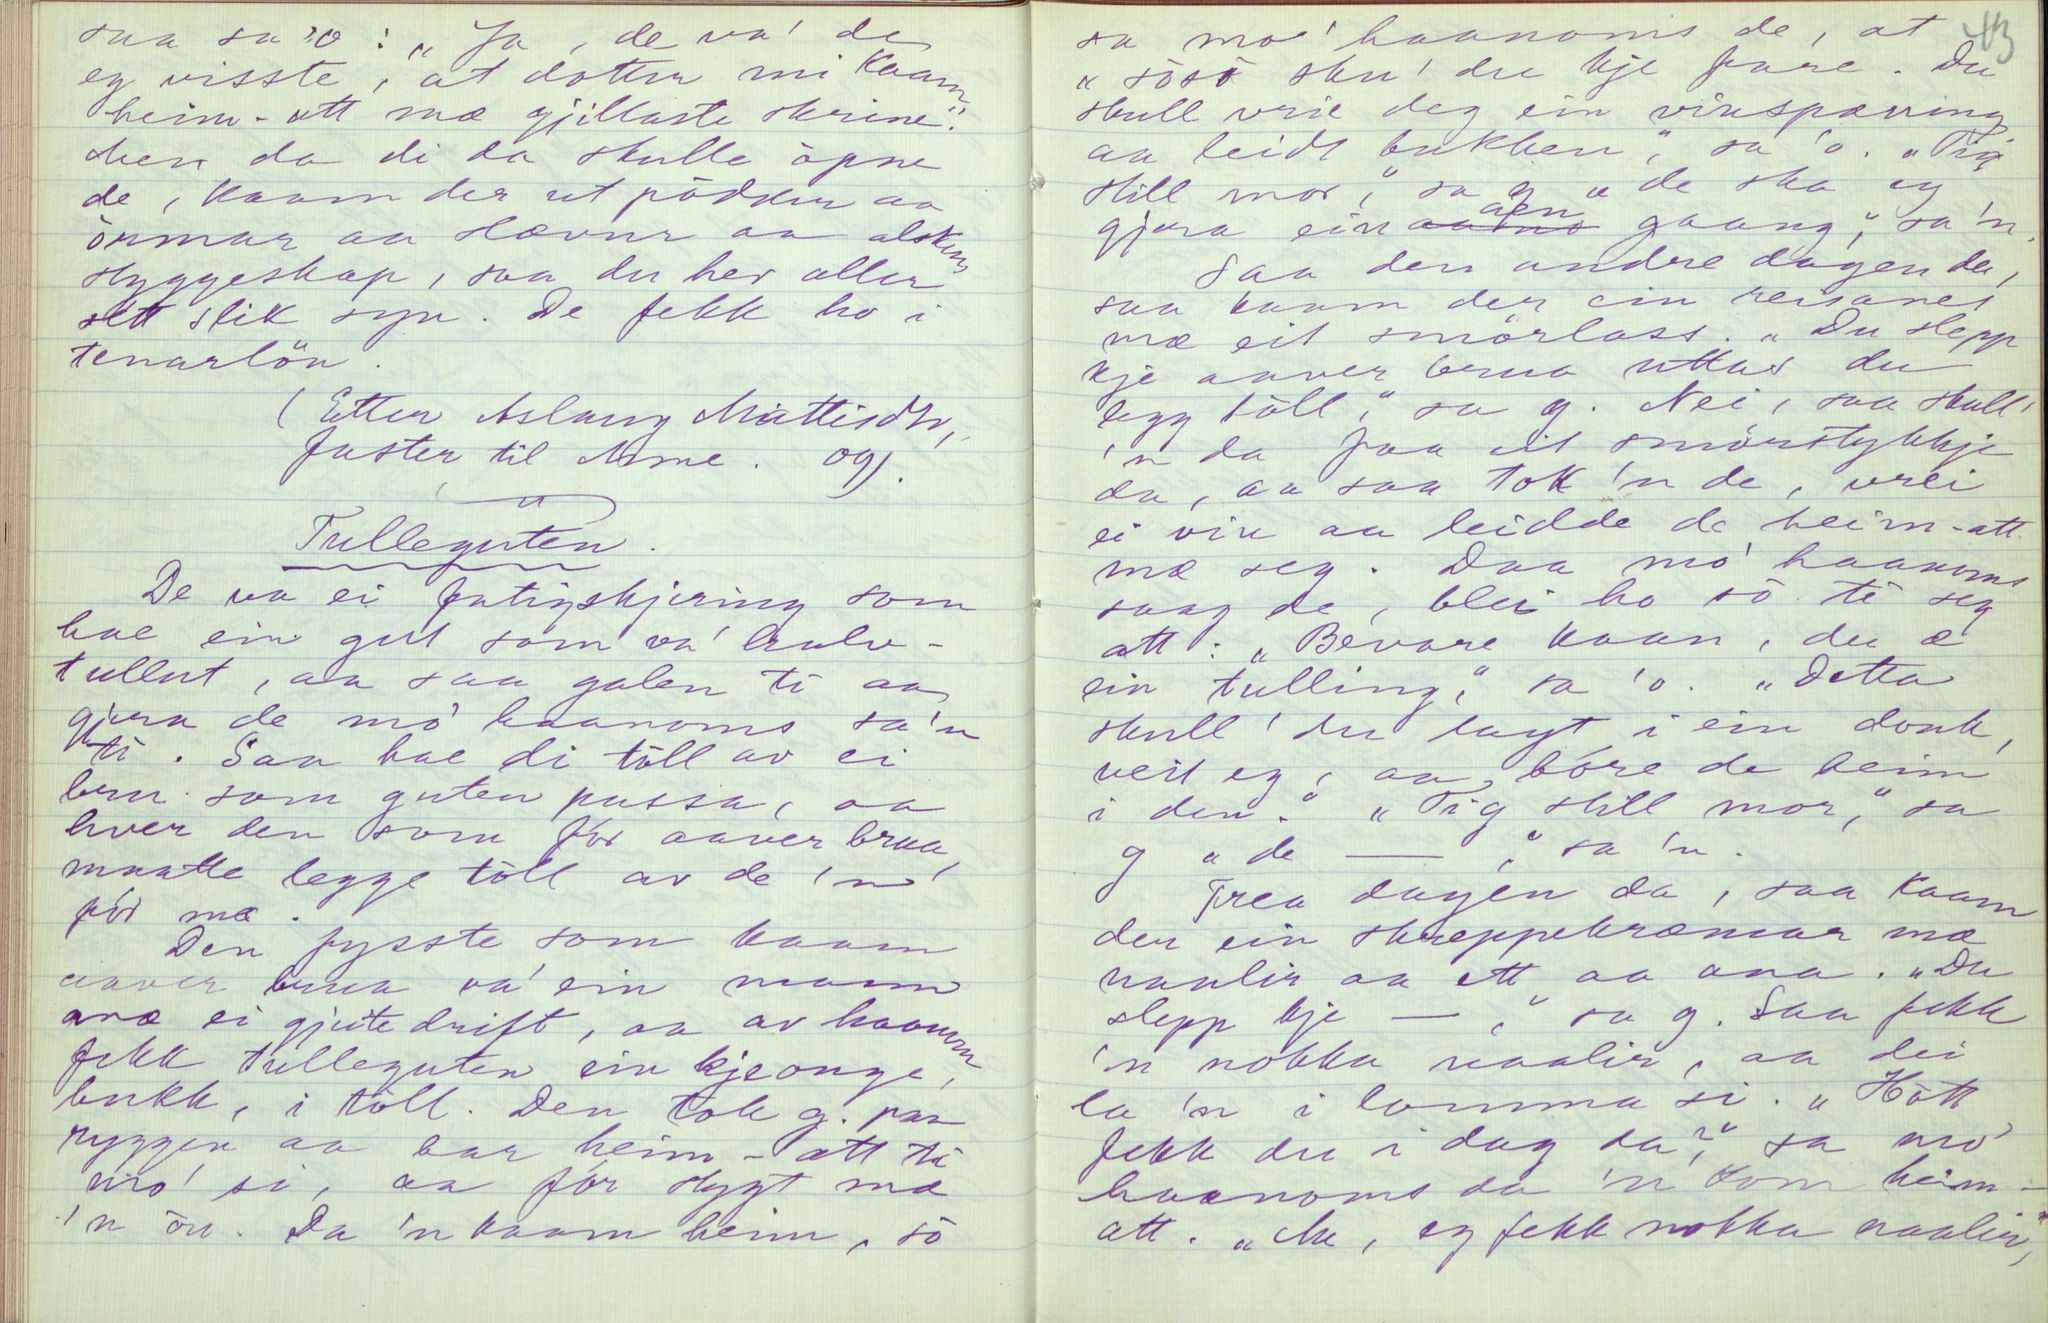 saa sa 'o : „Ja, de va' de
eg visste," at dotter mi kaam
heim-att mæ gjillaste skrine".
Men da di da skulle öpne
de, kaam der ut pôdder aa
örmar aa slævur aa alskens
styggeskap, saa du hev aller
sett slik syn. De fekk ho i
tenarlön.
(Etter Aslaug Mattisdtr,
faster til Anne. og).
Tulleguten.
De va ei fatigskjering som
hae ein gut som va' halv-
tullut, aa saa galen ti aa
gjera de mo' haanoms sa'n
ti. Saa hae di tôll av ei
bru som guten passa, aa
hver den som fór aaver brua,
maatte legge tôll av de 'n
fór mæ.
Den fysste som kaam
aaver brua va' ein mann
mæ ei gjeitedrift, aa av haanom
fekk tulleguten ein kjeonge,
bukk, i tôll. Den tok g. paa
ryggen aa bar heim-att ti
mo' si, aa fór stygt mæ
'n ôu. Da 'n kaam heim, sô
43
sa mo' haanoms de, at
„sôsô sku' du kje fare. Du
skull vrie deg ein viuspænning
aa leidt bukken," sa 'o. „Tig
still mor," sa g „de ska eg
gjera ein aen gaang," sa'n.
Saa den andre dagen da,
saa kaam der ein reisanes
mæ eit smörlass. „Du slepp
kje aaver brua uttas du
legg tôll," sa g. Nei, saa skull'
'n da faa eit smörstykkje
da, aa saa tok 'n de, vrei
ei viu aa leidde de heim-att
mæ seg. Daa mo' haanoms
saag de, blei ho sô te seg
att: „Bevare kaan, du æ
ein tulling," sa 'o. „Detta
skull' du lagt i ein donk,
veit eg, aa bore de heim
i den." „Tig still mor," sa
g „de —— ," sa 'n.
Trea dagen da, saa kaam
der ein skreppekræmar mæ
naalir aa ett aa ana. „Du
slepp kje — ," sa g. Saa fekk
'n nokka naalir, aa dei
la 'n i lomma si. „Hôtt
fekk du i dag da?," sa mo'
haanoms da 'n kom heim-
att. „Aa, eg fekk nokka naalir,"